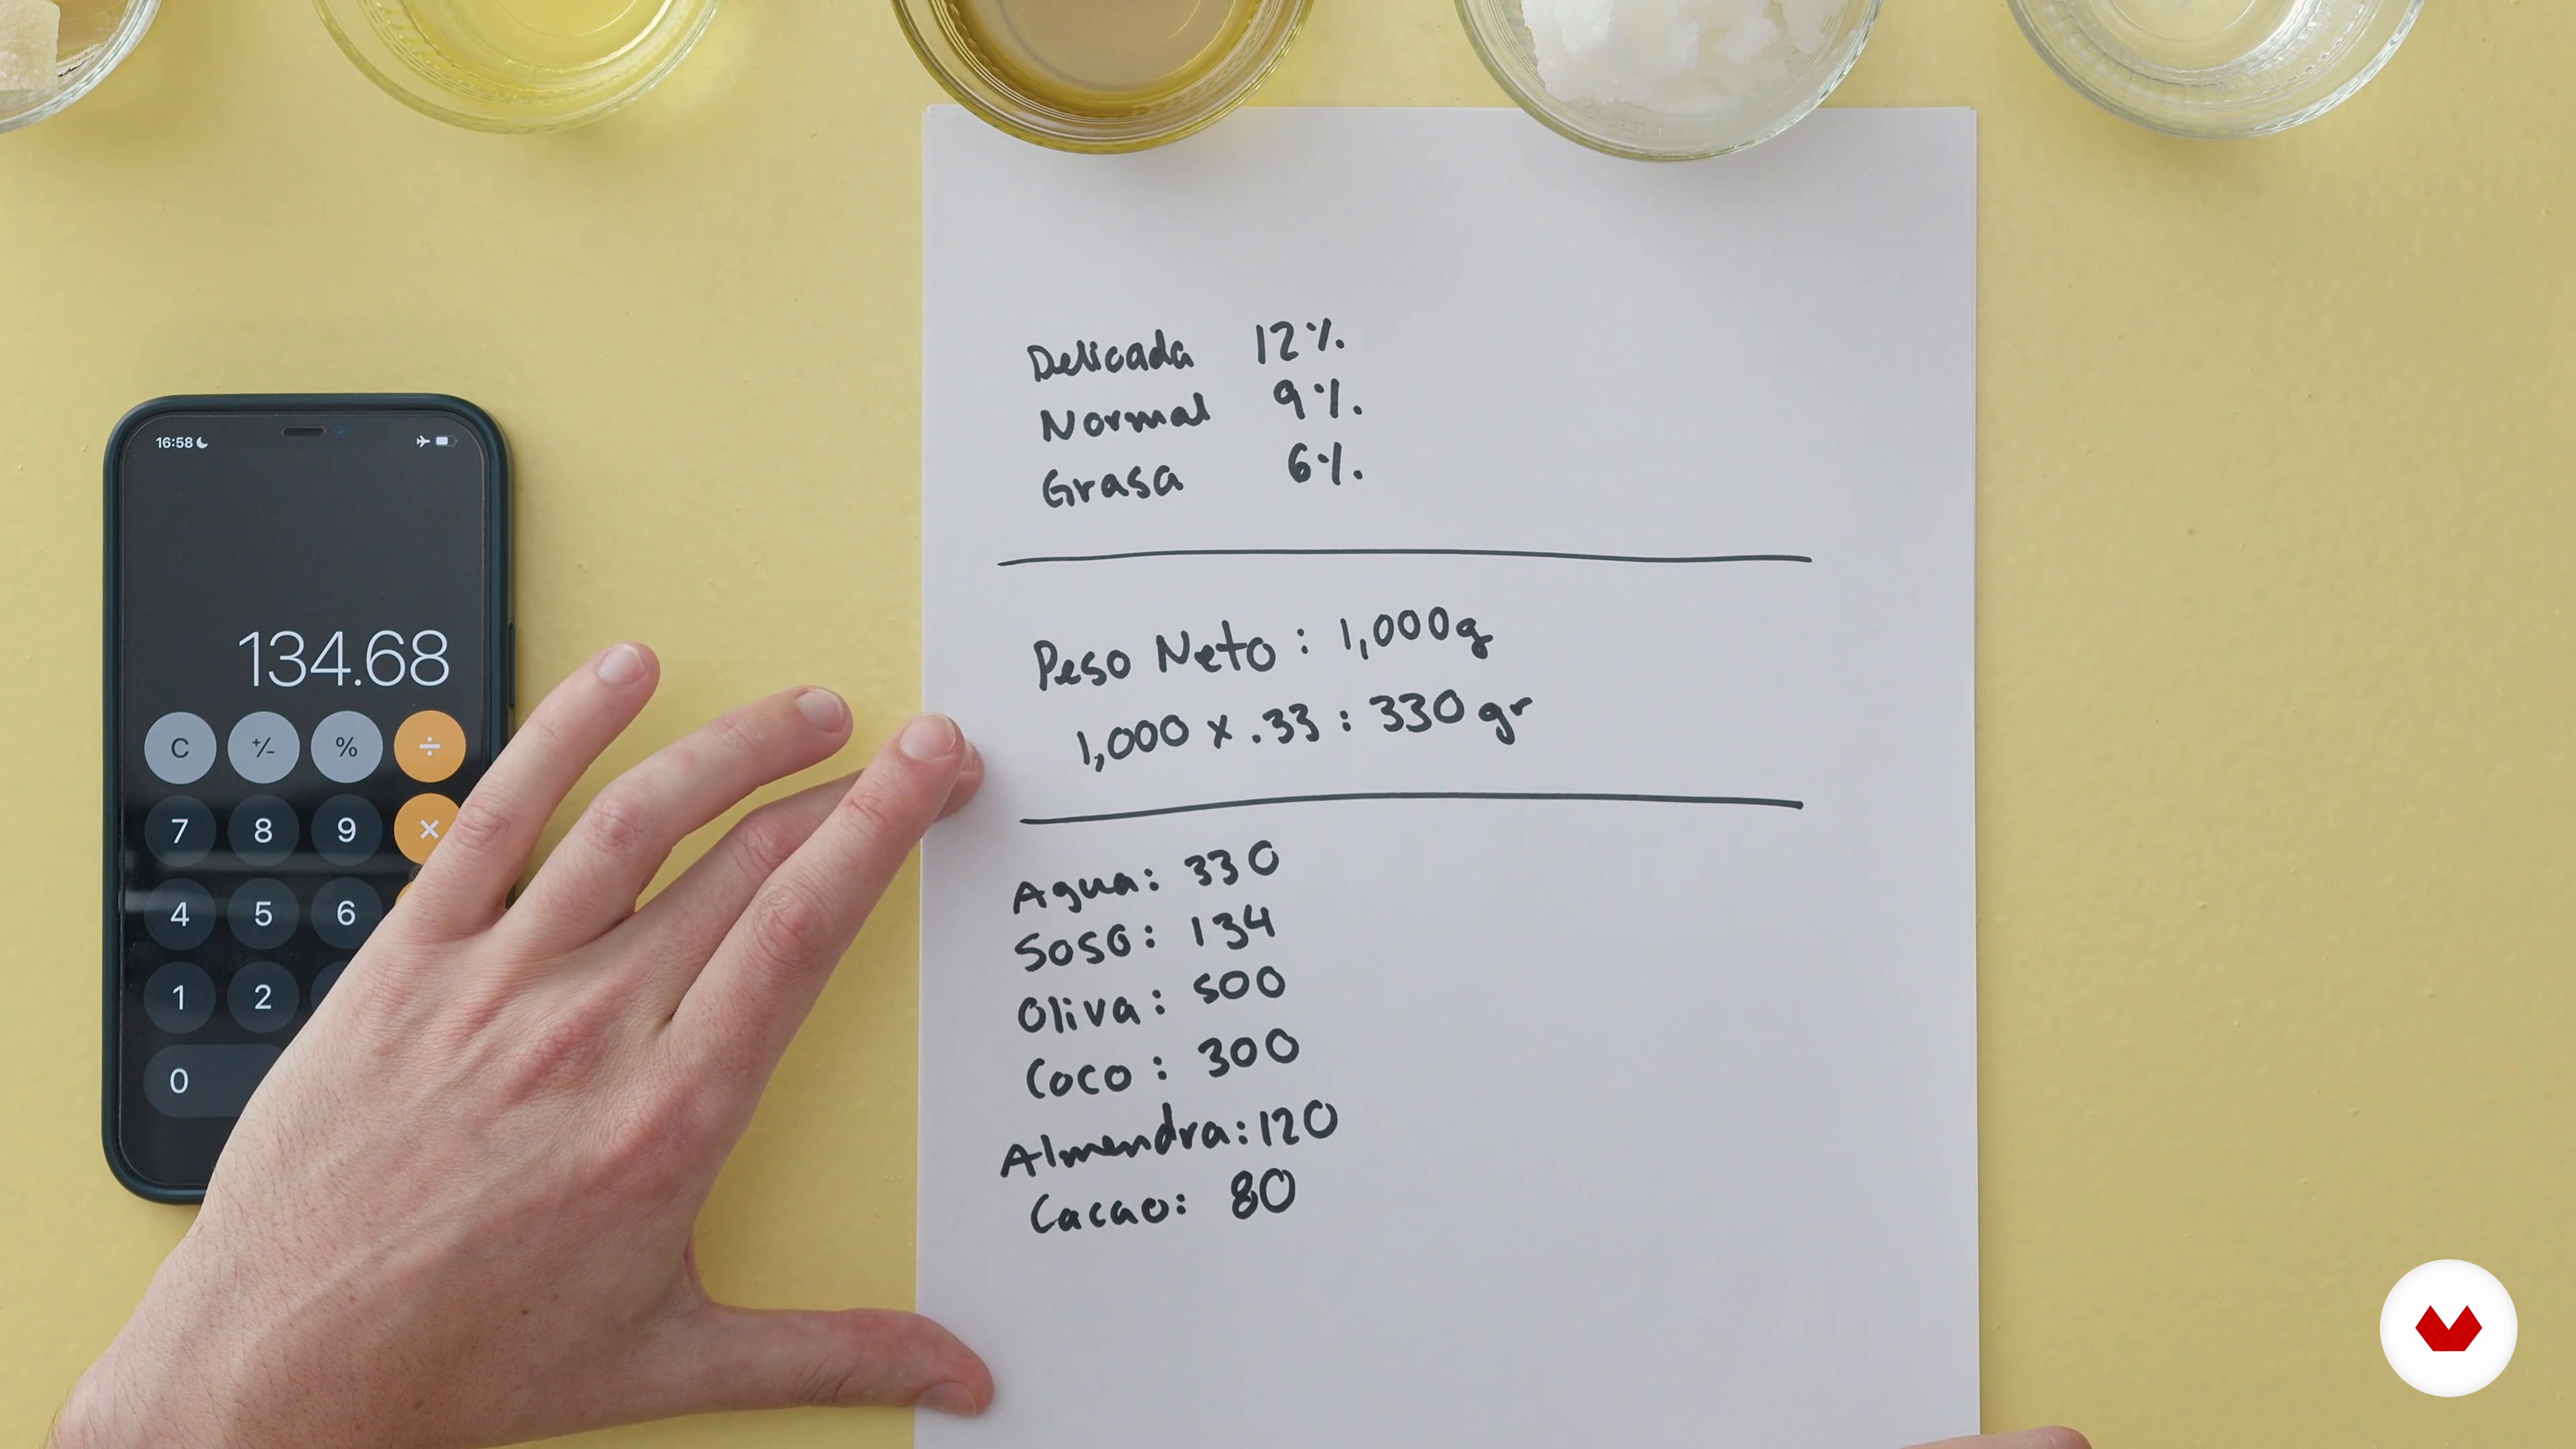 16:58
134.68
C +/- % ÷
7 8 9 ×
4 5 6
1 2
0
Delicada 12%.
Normal 9%.
Grasa 6%.
Peso Neto : 1,000g
1,000 x .33 : 330 gr
Agua: 330
Sosa: 134
Oliva: 500
Coco : 300
Almendra: 120
Cacao: 80